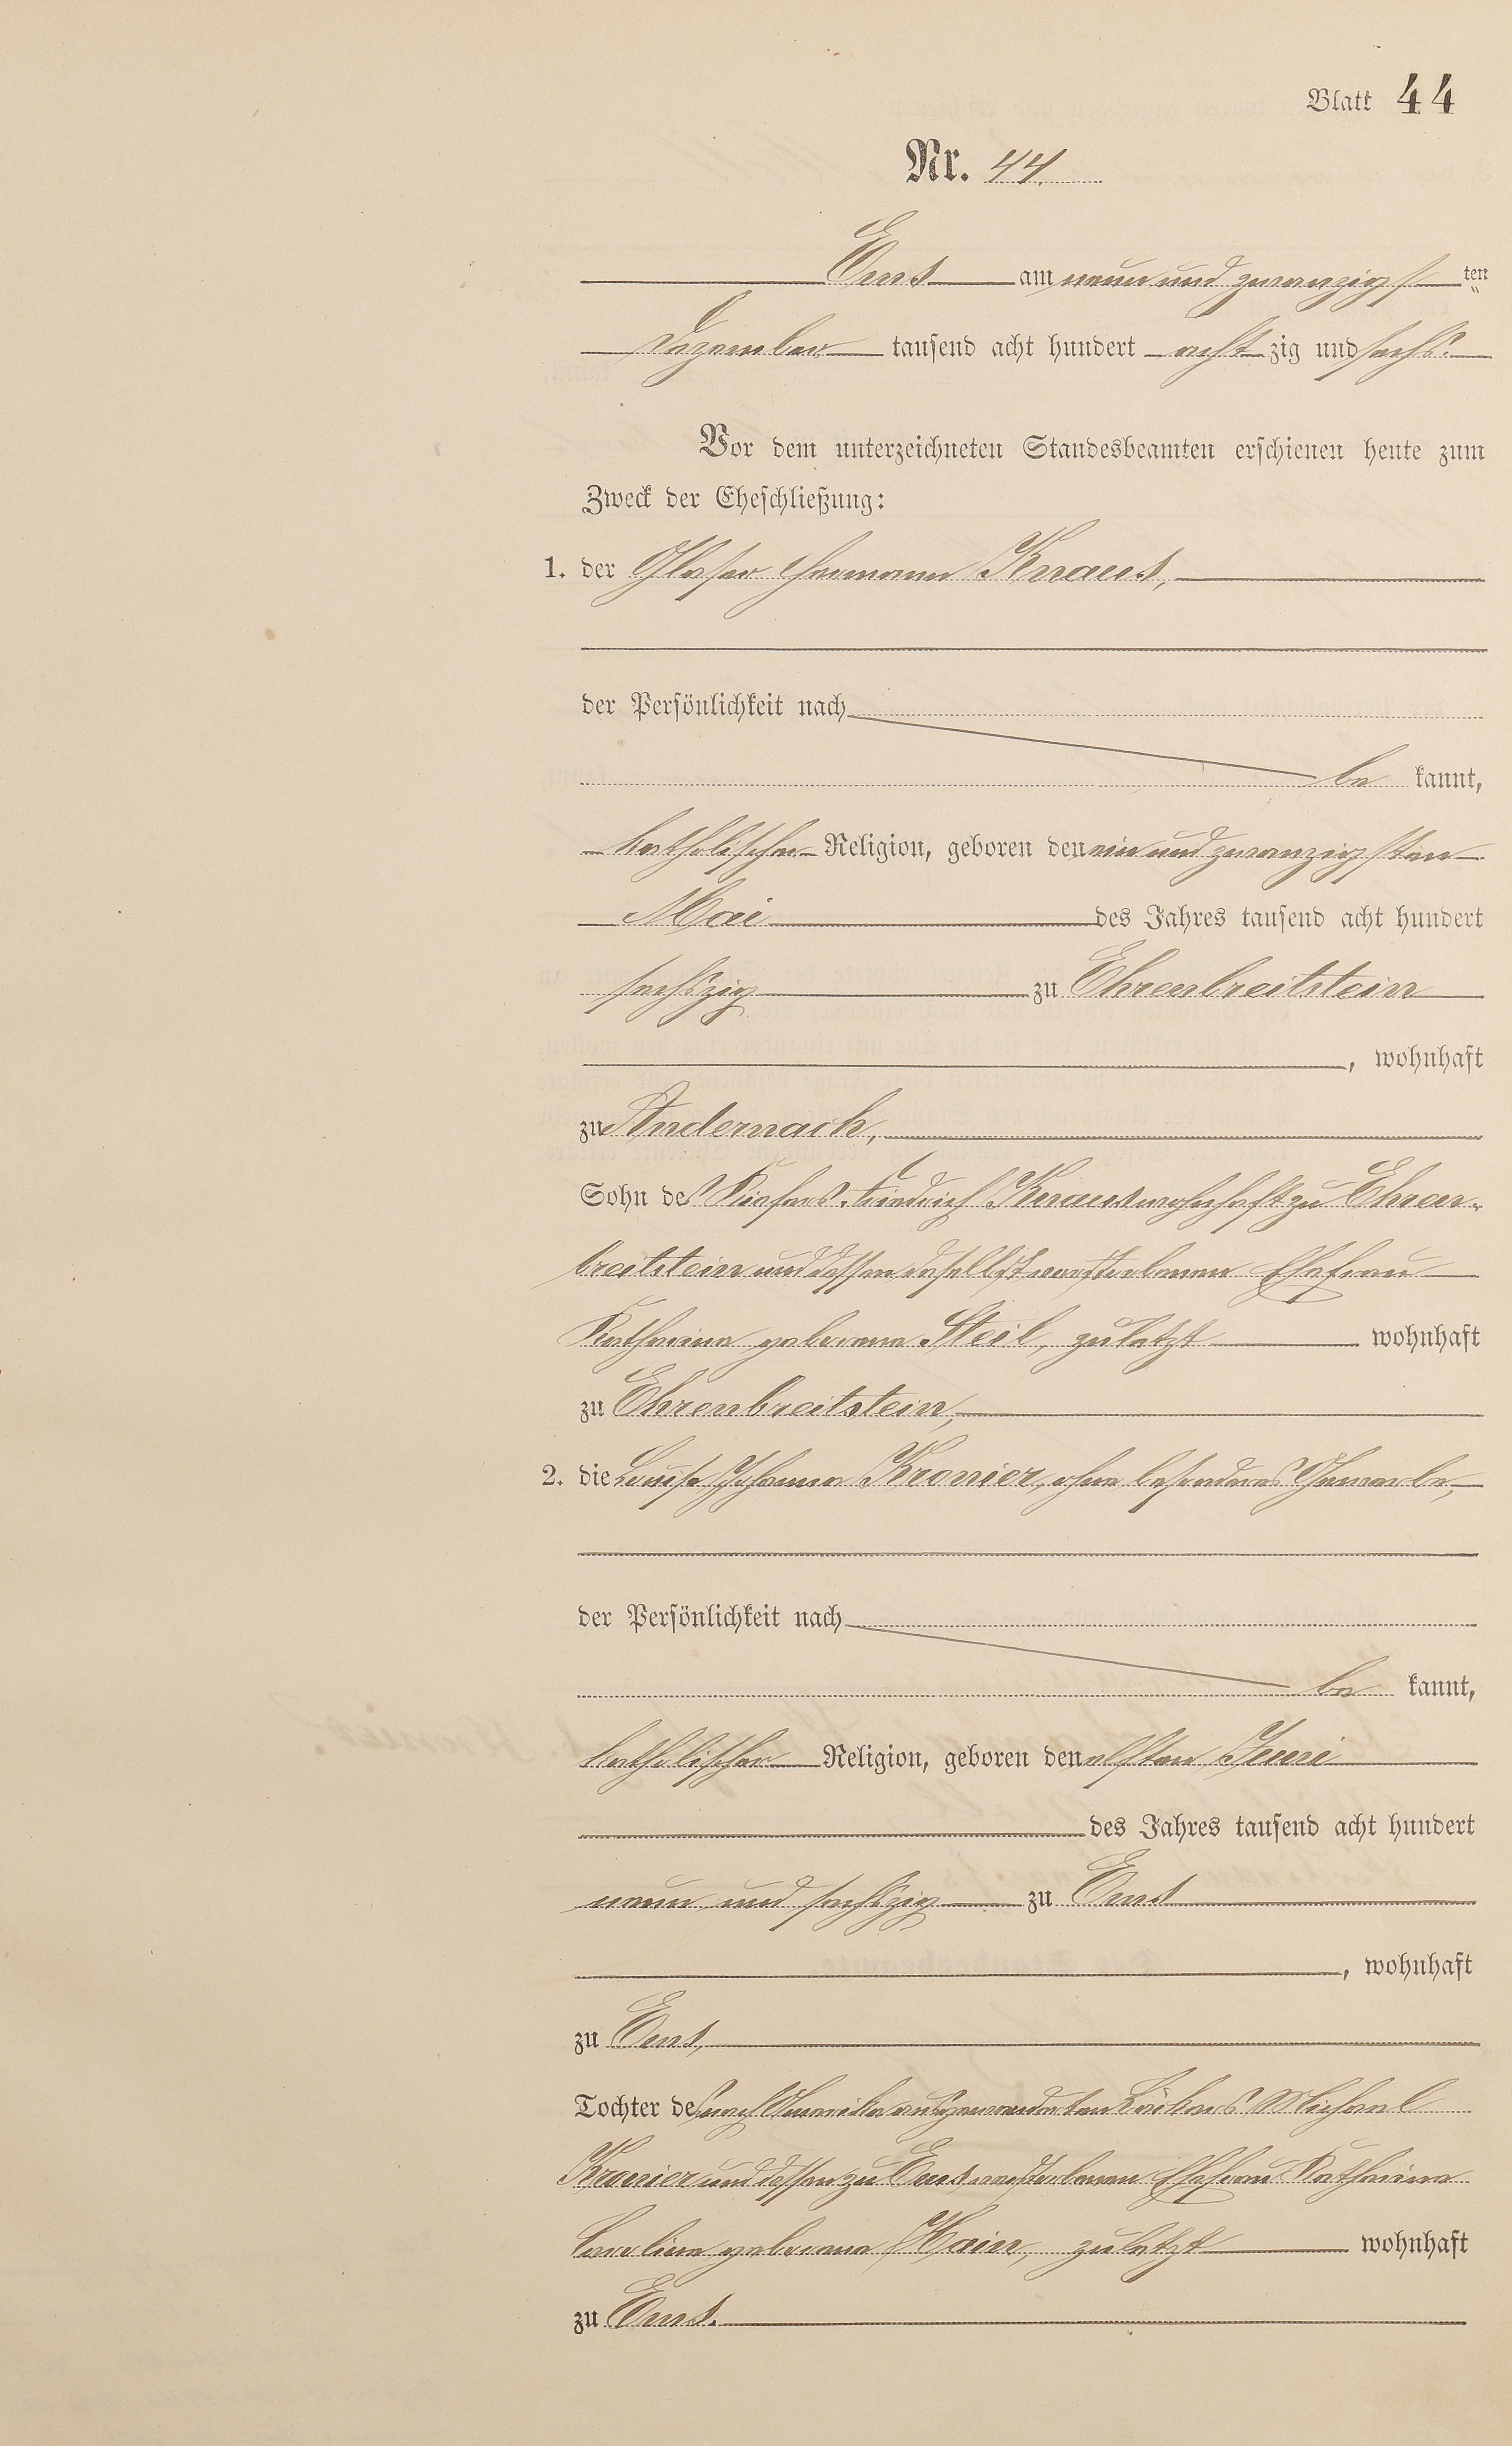 Blatt 44
Nr. 44.
Ems am neun und zwanzigsten
Dezember tausend acht hundert acht zig und sechs.
Vor dem unterzeichneten Standesbeamten erschienen heute zum
Zweck der Eheschließung:
1. der Glaser Hermann Knaus,
der Persönlichkeit nach
be kannt,
katholischer Religion, geboren den ein und zwanzigsten
Mai des Jahres tausend acht hundert
sechszig zu Ehrenbreitstein
, wohnhaft
zu Andernach,
Sohn des Küfers Friedrich Knaus wohnhaft zu Ehren-
breitstein und dessen daselbst verstorbenen Ehefrau
Katharina geborene Steil, zuletzt wohnhaft
zu Ehrenbreitstein,
2. die Louise Johanna Kronier, ohne besonderes Gewerbe,
der Persönlichkeit nach
be kannt,
katholischer Religion, geboren den elften Juni
des Jahres tausend acht hundert
neun und sechszig zu Ems
, wohnhaft
zu Ems,
Tochter des nach Amerika ausgewanderten Bäckers Michael
Kronier und dessen zu Ems verstorbenen Ehefrau Katharina
Carolina geborene Hain, zuletzt wohnhaft
zu Ems.